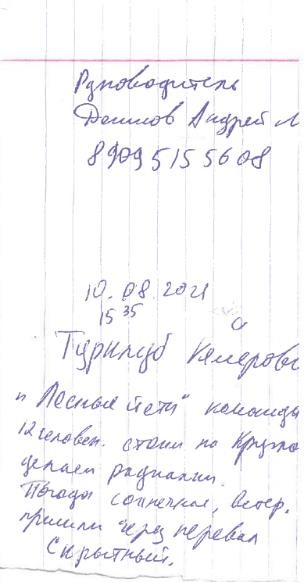 Руководитель
Денисов Андрей А
89095155608
10.08.2021
15 35
Турклуб Кемерово
"Лесные йети" команды
12 человек. стоим на
делаем радиалки.
Погода солнечная, ветер.
пришли через перевал
Скрытный.